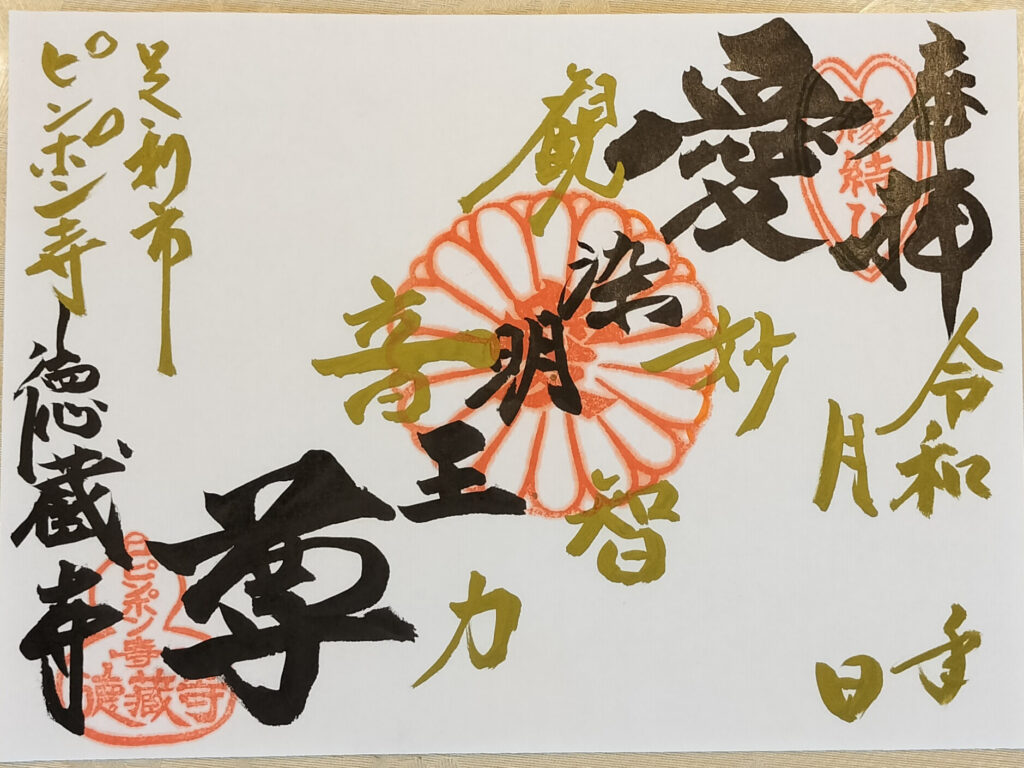 奉拝
縁結び
令和 年
月 日
愛染明王尊
観音妙智力
足利市
ピンポン寺
徳蔵寺
ピンポン寺
徳蔵寺